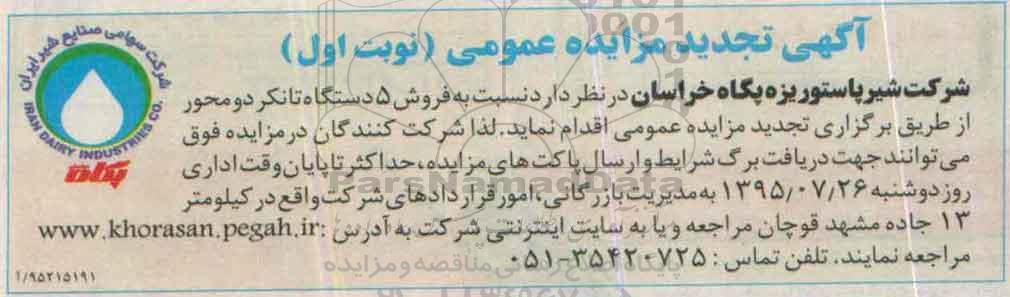 آگهی تجدید مزایده عمومی (نوبت اول)
شرکت شیر پاستوریزه پگاه خراسان در نظر دارد نسبت به فروش ۵ دستگاه تانکر دو محور
از طریق برگزاری تجدید مزایده عمومی اقدام نماید. لذا شرکت کنندگان در مزایده فوق
می توانند جهت دریافت برگ شرایط و ارسال پاکت های مزایده، حداکثر تا پایان وقت اداری
روز دوشنبه ۱۳۹۵/۰۷/۲۶ به مدیریت بازرگانی، امور قراردادهای شرکت واقع در کیلومتر
۱۳ جاده مشهد قوچان مراجعه و یا به سایت اینترنتی شرکت به آدرس: www.khorasan.pegah.ir
مراجعه نمایند. تلفن تماس: ۳۵۴۲۰۷۲۵-۰۵۱
شرکت سهامی صنایع شیر ایران
IRAN DAIRY INDUSTRIES CO.
پگاه
۹۵۲۱۵۱۹۱/آ
ParsNamadData